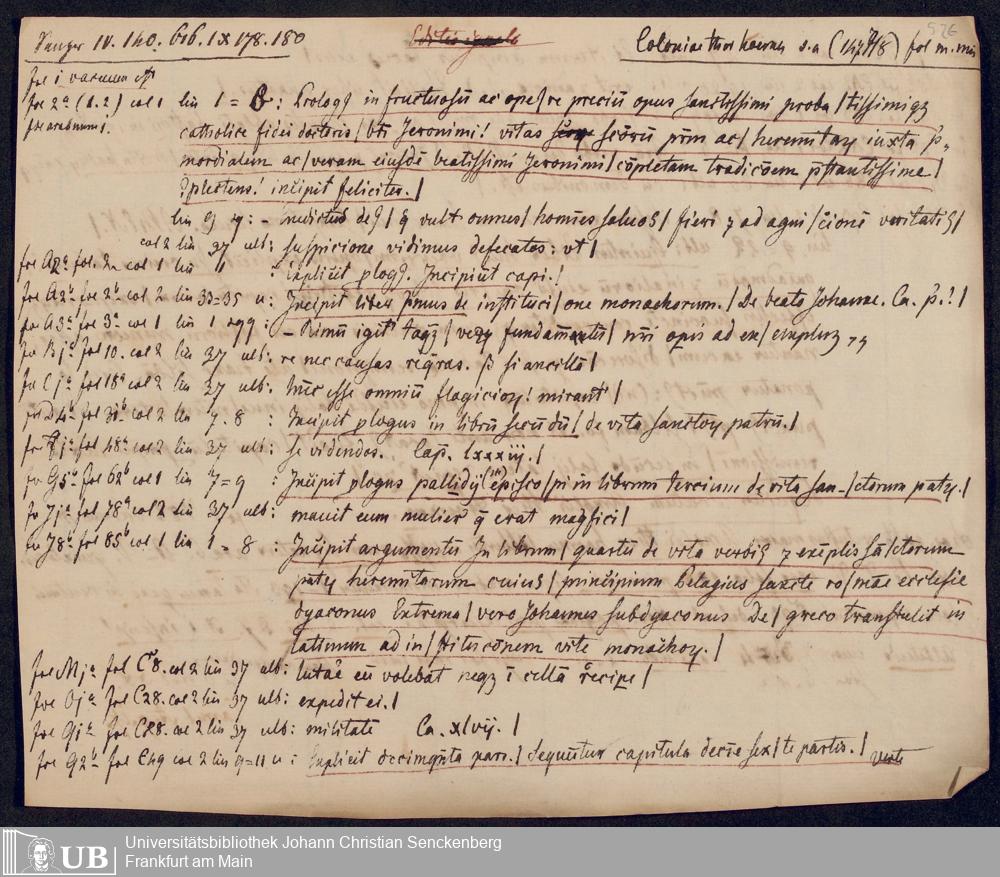 Panzer IV. 140. 616. IX 178. 180
Coloniae ther hoernen s.a (147 /8) fol m. min
526
fol 1 vacuum est
fol 2a (1.2) col 1 lin 1 = 6: Prologꝫ in fructuosū ac ope/re preciū opus sanctissimi proba/tissimiqꝫ
catholice fidei doctoris/bti Jeronimi! vitas scōrū prm ac/heremitaꝝ iuxta p̄-
mordialem ac/veram eiusdē beatissimi Jeronimi/cōpletam tradicōem pr̄stantissime/
ꝯplectens! incipit feliciter./
lin 9 sq: - benedictus deꝰ/ q̄ vult omnes/homīes saluos/fieri ꝫ ad agni/cionē veritatis/
col 2 lin 37 ult: suspicione vidimus defecatos: vt/
fol A2a fol. 2a col 1 lin 11 : Explicit plogꝰ. Incipiūt capi./
fol A2b fol 2b col 2 lin 33=35 u: Incipit liber pīmus de instituci/one monachorum./De beato Johanne. Ca. p̄.?/
fol A3a fol 3a col 1 lin 1 sqq: - Rimū igit̄ tāqꝫ/veꝝ fundamentū/nrī opis ad ex/emplum ꝛ
fol Bja fol 10. col 2 lin 37 ult: re nec causas reqras. ꝑ si ancillā/
fol Cja fol 18a col 2 lin 37 ult: hūc esse omniū flagicioꝝ! mirant̄/
fol D4b fol 30b col 2 lin 7. 8 : Incipit plogus in librū secūdū/de vita sanctoꝝ patrū./
fol Fja fol 48a col 2 lin 37 ult: se videndos. Cap. lxxxiij./
fol G5b fol 62b col 1 lin 7=9 : Incipit plogus palladij epīsco/pi in librum tercium de vita san-/ctorum patꝝ./
fol Jja fol 78a col 2 lin 37 ult: mauit eum mulier q̄ erat magfici/
fol J8b fol 85b col 1 lin 1 = 8 : Incipit argumentū In librum/quartū de vita verbis ꝫ exēplis sā/ctorum
patꝝ heremitarum cuius/principium Pelagius sancte ro/māe ecclesie
dyaconus Extrema/vero Johannes subdyaconus De/greco transtulit in
latinum ad in/stitucōnem vite monachoꝝ./
fol Mja fol C8. col 2 lin 37 ult: eū volebat neqꝫ ī cellā recipe/
fol Oja fol C28. col 2 lin 37 ult: expedit ei./
fol Qja fol C48. col 2 lin 37 ult: militatē Ca. xlvij./
fol Q2b fol C49 col 2 lin 9=11 u: Explicit decimqnta pars./Sequuntur capitula decie sex/te partis./ verte
Universitätsbibliothek Johann Christian Senckenberg
Frankfurt am Main
UB